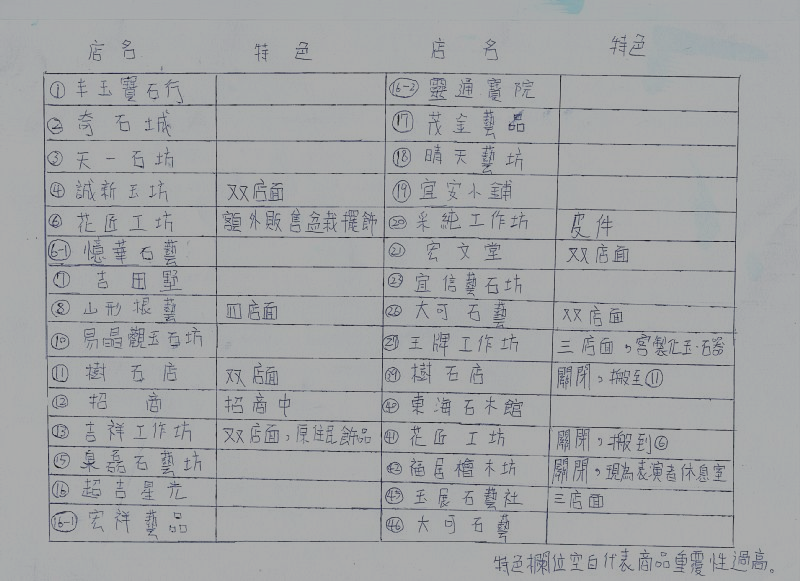 店名 特色 店名 特色
① 丰玉寶石行 16-2 靈通寶院
② 奇石城 ⑰ 茂金藝品
③ 天一石坊 ⑱ 晴天藝坊
④ 誠新玉坊 双店面 ⑲ 宜安小舖
⑥ 花匠工坊 額外販售盆栽擺飾 ⑳ 采純工作坊 皮件
6-1 憶華石藝 ㉑ 宏文堂 双店面
⑦ 吉田墅 宜信藝石坊
⑧ 山形根藝 四店面 大可石藝 双店面
⑩ 易晶觀玉石坊 王牌工作坊 三店面,客製化玉.石器
⑪ 樹石店 双店面 樹石店 關閉,搬至⑪
⑫ 招商 招商中 ㊵ 東海石木館
⑬ 吉祥工作坊 双店面,原住民飾品 ㊶ 花匠工坊 關閉,搬到⑥
⑮ 磊石藝坊 ㊷ 福居檜木坊 關閉,現為表演者休息室
⑯ 超吉星光 玉展石藝社 三店面
16-1 宏祥藝品 ㊻ 大可石藝
特色欄位空白代表商品重覆性過高。